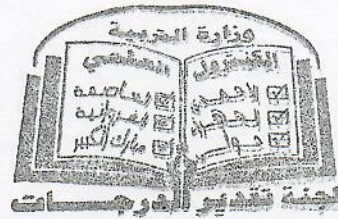 وزارة التربية
الكنترول التعليمي
الاحمدي
الجهراء
حولي
العاصمة
الفروانية
مبارك الكبير
لجنة تقدير الدرجات